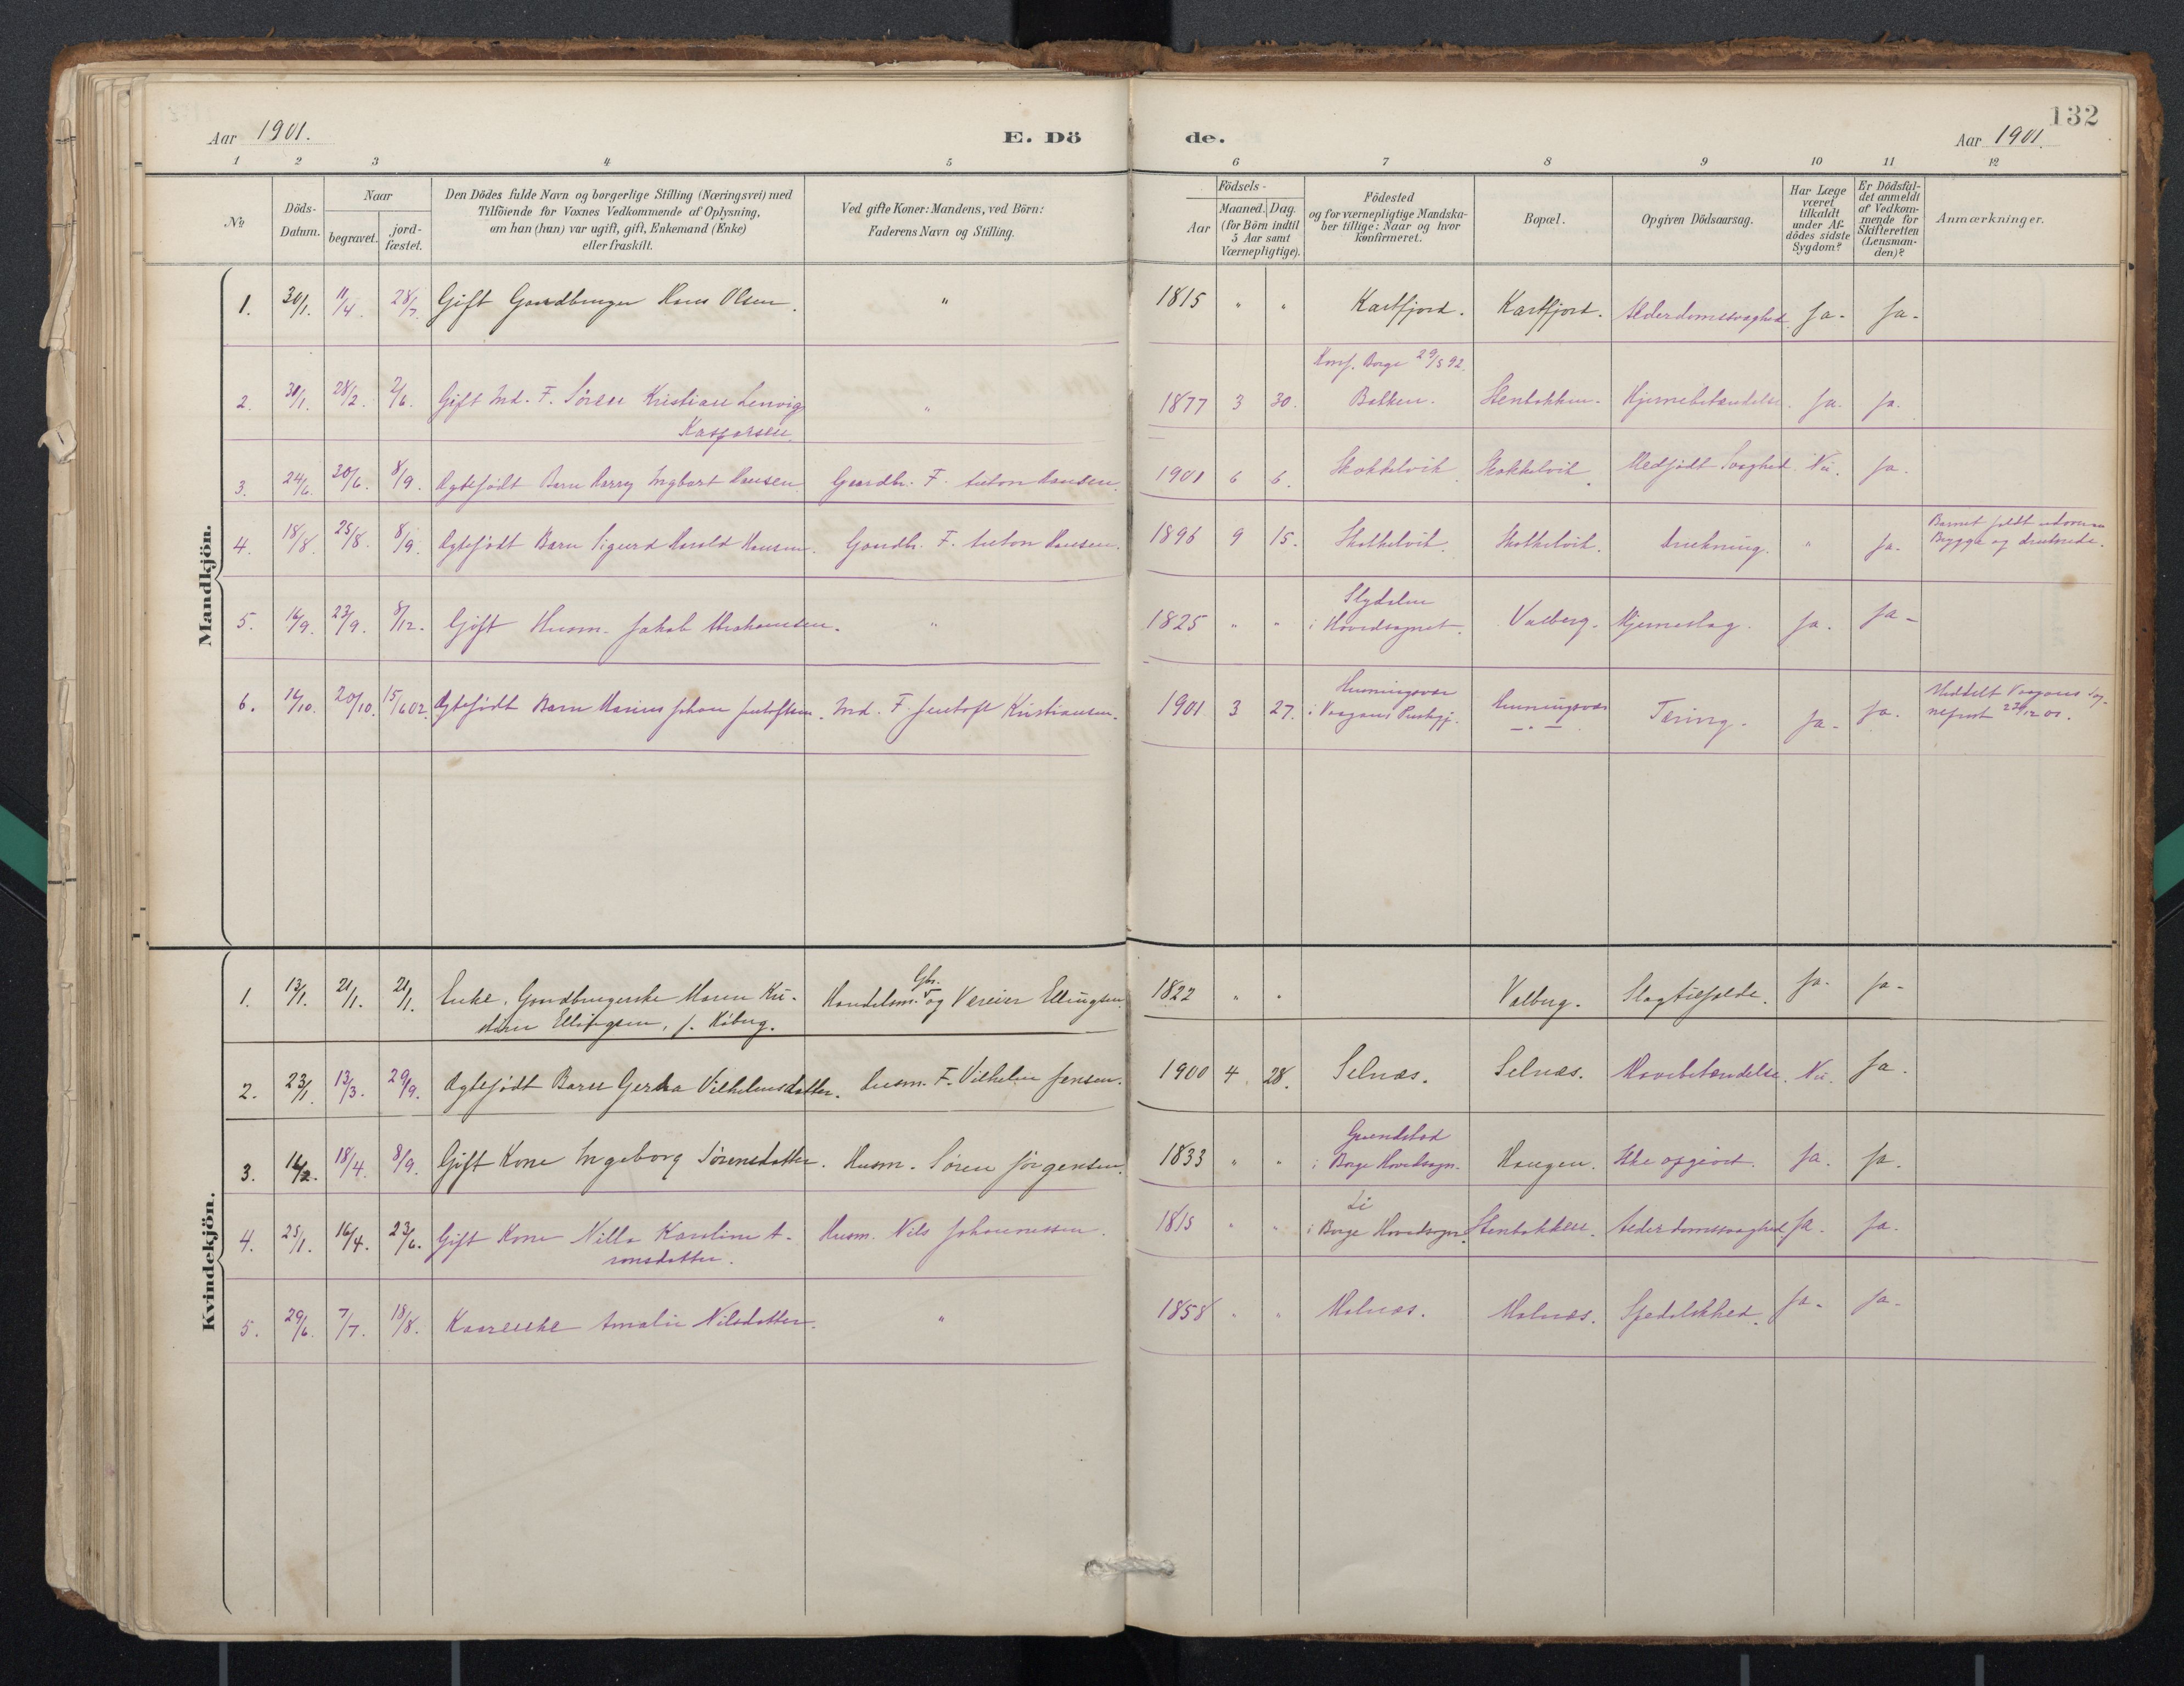 132
Aar 1901.
E. Dö
de.
Aar 1901.
1 2 3 4 5 6 7 8 9 10 11 12
No
Döds-
Datum.
Naar
begravet.
jord-
fæstet.
Den Dödes fulde Navn og borgerlige Stilling (Næringsvei) med
Tilföiende for Voxnes Vedkommende af Oplysning,
om han (hun) var ugift, gift, Enkemand (Enke)
eller fraskilt.
Ved gifte Koner: Mandens, ved Börn:
Faderens Navn og Stilling.
Födsels-
Aar
Maaned. Dag.
(for Börn indtil
5 Aar samt
Værnepligtige).
Födested
og for værnepligtige Mandska-
ber tillige: Naar og hvor
konfirmeret.
Bopæl.
Opgiven Dödsaarsag.
Har Læge
været
tilkaldt
under Af-
dödes sidste
Sygdom?
Er Dödsfal-
det anmeldt
af Vedkom-
mende for
Skifteretten
(Lensman-
den)?
Anmærkninger.
Mandkjön.
1. 30/1. 11/4. 28/7. Gift Gaardbruger Hans Olsen. " 1815 " " Kartfjord. Kartfjord. Alderdomssvaghed. Ja. Ja.
Konf. Borge 29/5 92.
2. 30/1. 28/2. 2/6. Gift Ind. F. Sören Kristian Lenvig " 1877 3 30. Bakken. Stenbakken. Hjernebetændelse. Ja. Ja.
Kasparsen.
3. 24/6. 30/6. 8/9. Ægtefödt Barn Harry Ingbart Hansen Gaardbr. F. Anton Hansen. 1901 6 6. Skokkelvik. Skokkelvik. Medfödt Svaghed. Nei. Ja.
4. 18/8. 25/8. 8/9. Ægtefödt Barn Sigurd Harald Hansen. Gaardb. F. Anton Hansen. 1896 9 15. Skokkelvik. Skokkelvik. Drukning. " Ja. Barnet faldt udover en
Brygge og druknede.
5. 16/9. 23/9. 8/12. Gift Husm. Jakob Abrahamsen. " 1825 " " Slydalen
i Hovedsognet. Valberg. Hjerneslag. Ja. Ja.
6. 14/10. 20/10. 15/6 02. Ægtefödt Barn Marius Johan Jentoftsen. Ind. F. Jentoft Kristiansen. 1901 3 27. Henningsvær
i Vaagans Presteg. Henningsvær Tæring. Ja. Ja. Meddelt Vaagans Sog-
neprest 23/12 01.
Kvindekjön.
1. 13/1. 21/1. 21/1. Enke. Gaardbrugerske Maren Kri- Gbr.
Handelsm. og Væreier Ellingsen. 1822 " " Valberg. Slagtilfælde. Ja. Ja.
stine Ellingsen, f. Röberg.
2. 23/1. 13/3. 29/9. Ægtefödt Barn Gerda Vilhelmsdatter. Husm. F. Vilhelm Jensen. 1900 4 28. Selnæs. Selnæs. Halsbetændelse. Nei. Ja.
3. 14/2. 18/4. 8/9. Gift Kone Ingeborg Sörensdatter. Husm. Sören Jörgensen. 1833 " " Grændstad
i Borge Hovedsogn. Haugen. Ikke opgivet. Ja. Ja.
4. 25/1. 16/4. 23/6. Gift Kone Nilla Karoline A- Husm. Nils Johannessen. 1815 " " Li
i Borge Hovedsogn. Stenbakken. Alderdomssvaghed. Ja. Ja.
ronsdatter.
5. 29/6. 7/7. 18/8. Kaarenske Amalie Nilsdatter. " 1858 " " Molnæs. Molnæs. Spedalskhed. Ja. Ja.